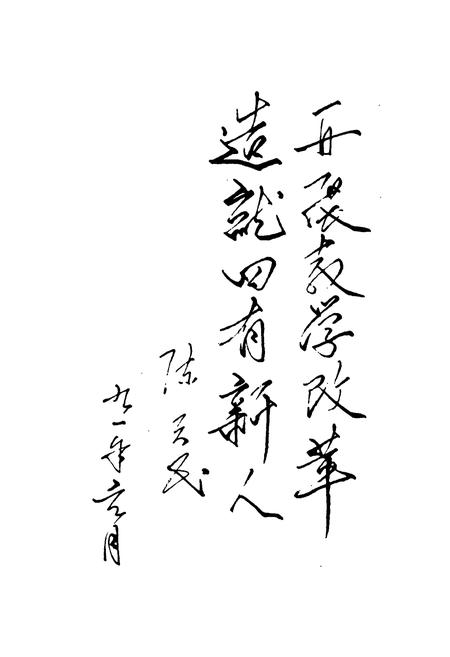 开展教学改革
造就四有新人
陈民
九一年六月